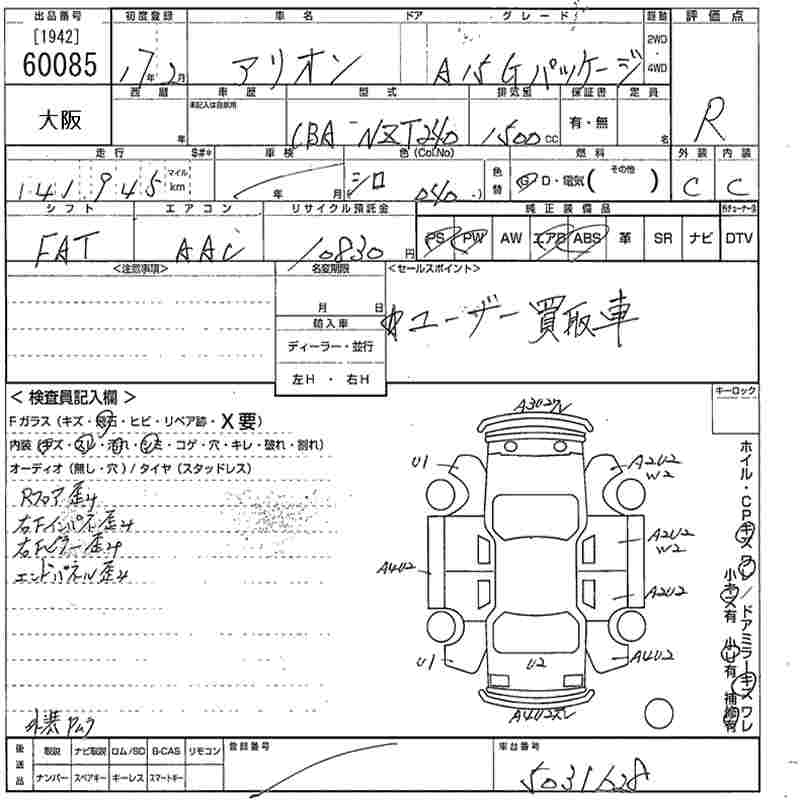 出品番号 初度登録 車名 ドア グレード 駆動 評価点
[1942]
60085 17年2月 アリオン A15Gパッケージ 2WD 4WD R
大阪 西暦 年 車歴 未記入は自家用 型式 CBA-NZT240 排気量 1500cc 保証書 有・無 定員 名
走行 141945 マイル km 車検 年 月 色(Col.No) シロ 040 色替 燃料 G D・電気( その他 ) 外装 C 内装 C
シフト FAT エアコン AAC リサイクル預託金 10830円 純正装備品 PS PW AW エアB ABS 革 SR ナビ DTV
<注意事項> 名変期限 月 日 <セールスポイント>
ユーザー買取車
輸入車
ディーラー・並行
左H・右H
<検査員記入欄> キーロック
Fガラス(キズ・飛石・ヒビ・リペア跡・X要)
内装(キズ・スレ・汚れ・シミ・コゲ・穴・キレ・破れ・割れ)
オーディオ(無し・穴)/タイヤ(スタッドレス)
Rフロア歪み
右Fインパネ歪み
右Fピラー歪み
エンドパネル歪み
外装
U1 A2U2 W2
A2U2 W2
A4U2 A2U2
U1 U2 A4U2
ホイル・CPキズワレ/ドアミラーキズワレ
小キズ有 小U有 補修有
後送品 取説 ナビ取説 ロム/SD G-CAS リモコン 登録番号 車台番号
ナンバー スペアキー キーレス スマートキー